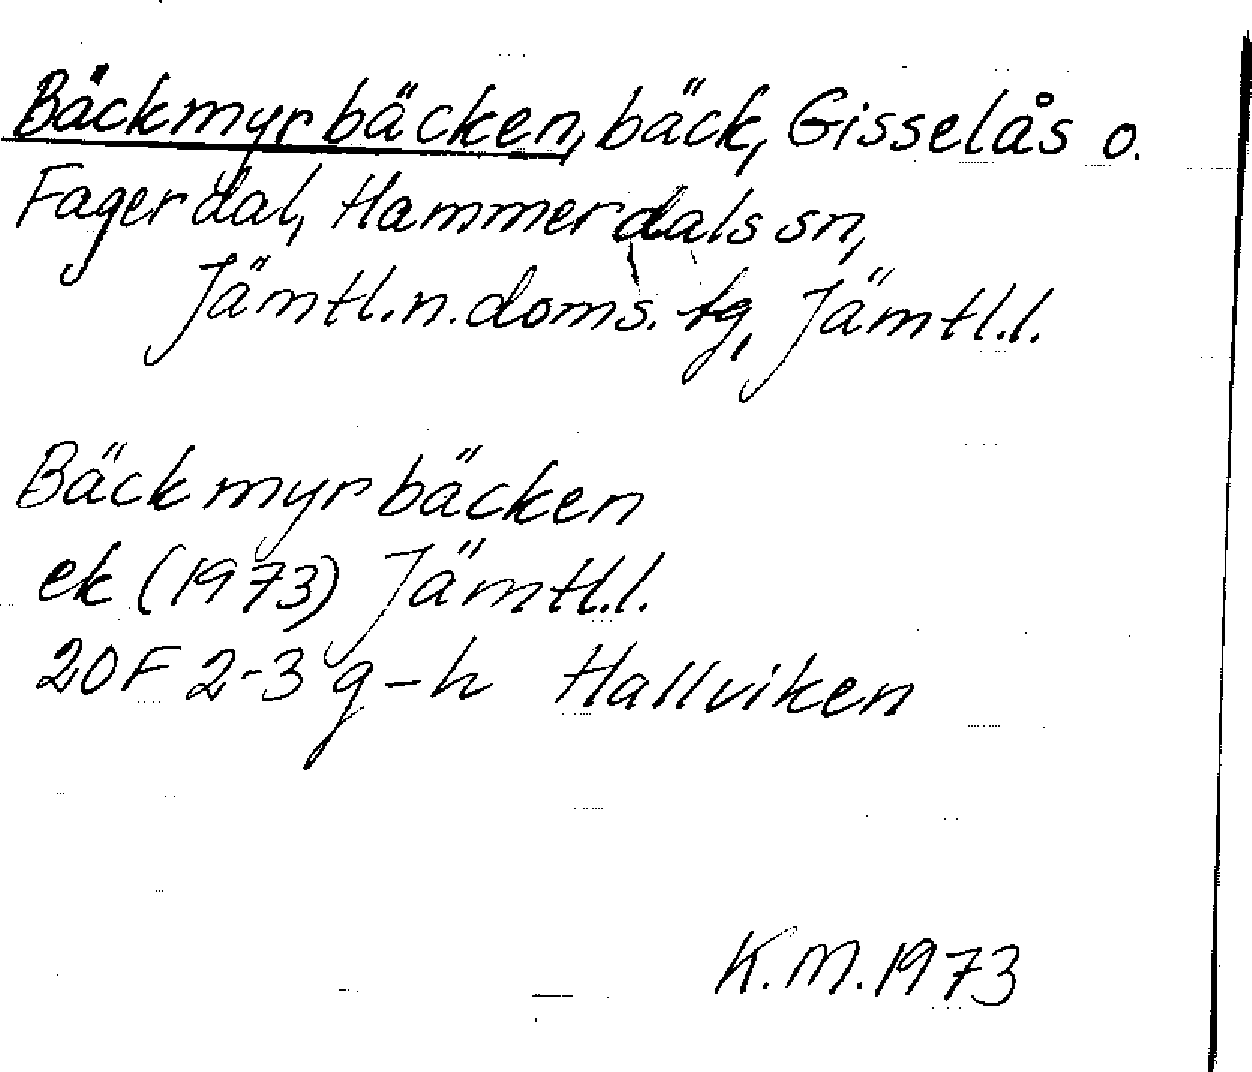 Bäckmyrbäcken, bäck, Gisselås o.
Fagerdal, Hammerdals sn,
Jämtl.n.doms. tg, Jämtl.l.
Bäckmyrbäcken
ek (1973) Jämtl.l.
20F 2-3 g-h Hallviken
K.M.1973